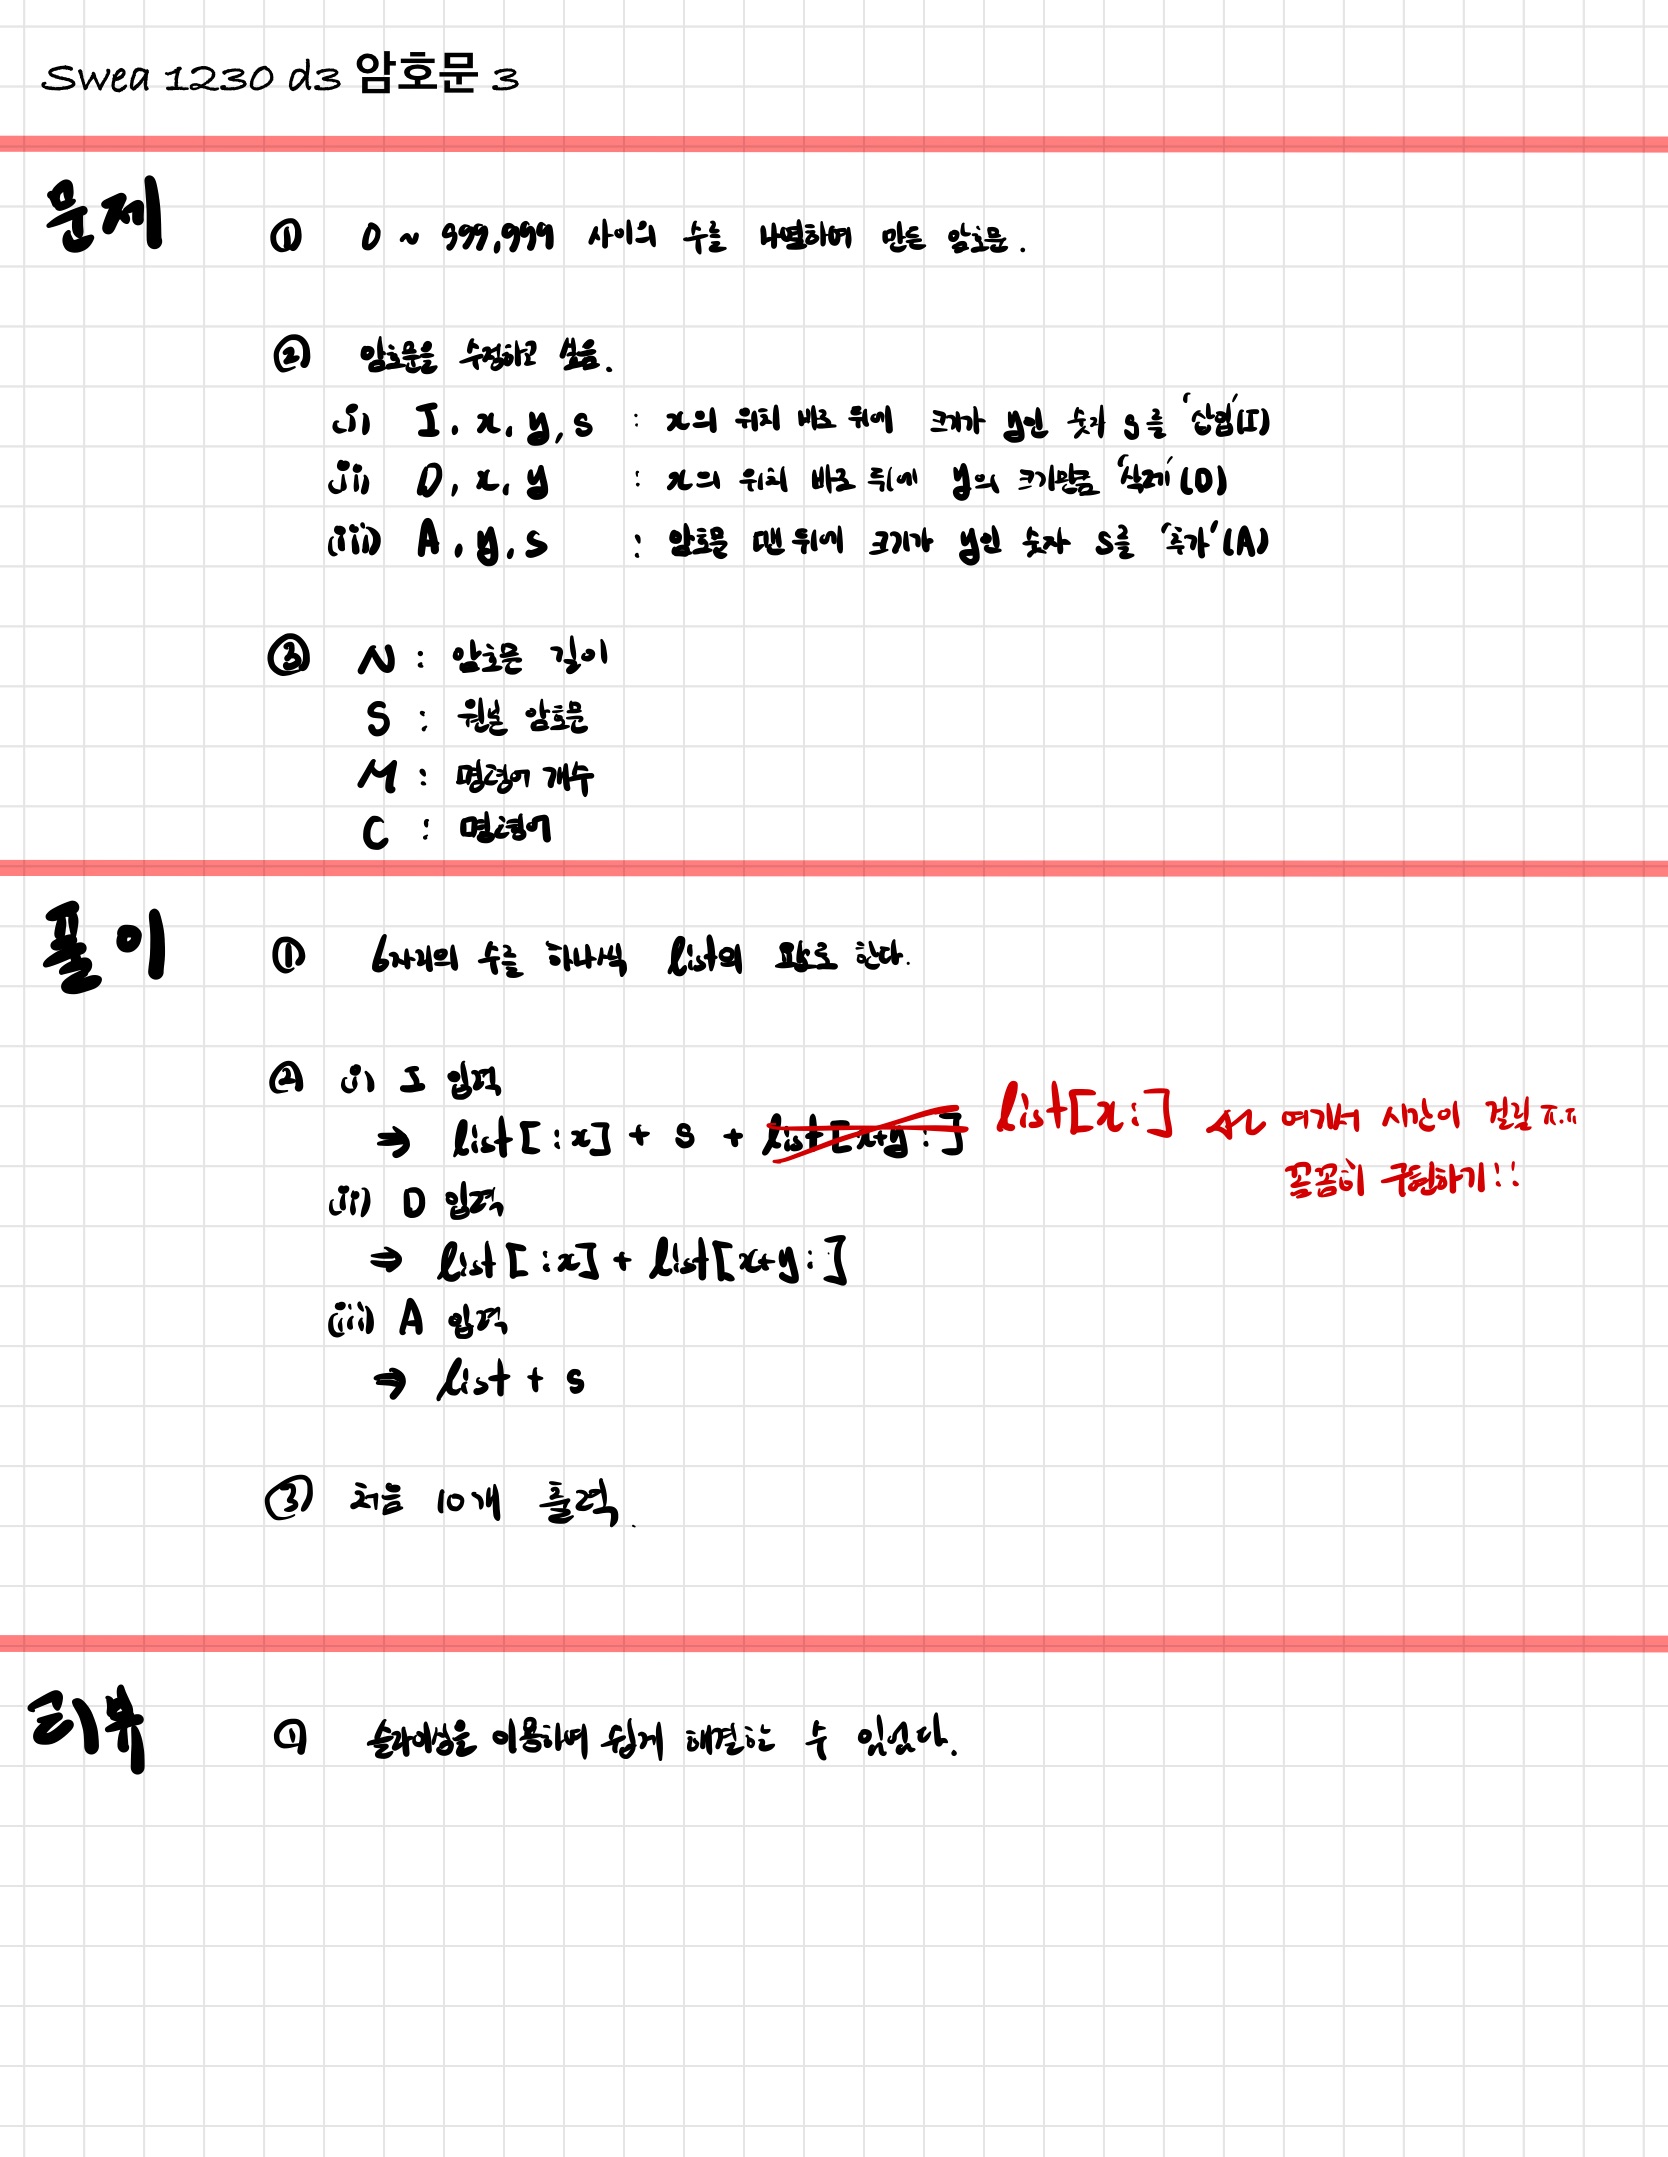 Swea 1230 d3 암호문 3
문제
① 0 ~ 999,999 사이의 수를 나열하여 만든 암호문.
② 암호문을 수정하고 싶음.
(i) I, x, y, s : x의 위치 바로 뒤에 크기가 y인 숫자 s를 '삽입'(I)
(ii) D, x, y : x의 위치 바로 뒤에 y의 크기만큼 '삭제'(D)
(iii) A, y, s : 암호문 맨 뒤에 크기가 y인 숫자 s를 '추가'(A)
③ N : 암호문 길이
S : 원본 암호문
M : 명령어 개수
C : 명령어
풀이
① 6자리의 수를 하나씩 list의 요소로 한다.
② (i) I 입력
⇒ list[:x] + s + list[x+y:] list[x:] 여기서 시간이 걸림 ㅠ.ㅠ
꼼꼼히 구현하기!!
(ii) D 입력
⇒ list[:x] + list[x+y:]
(iii) A 입력
⇒ list + s
③ 처음 10개 출력.
리뷰
① 슬라이싱을 이용하여 쉽게 해결할 수 있었다.